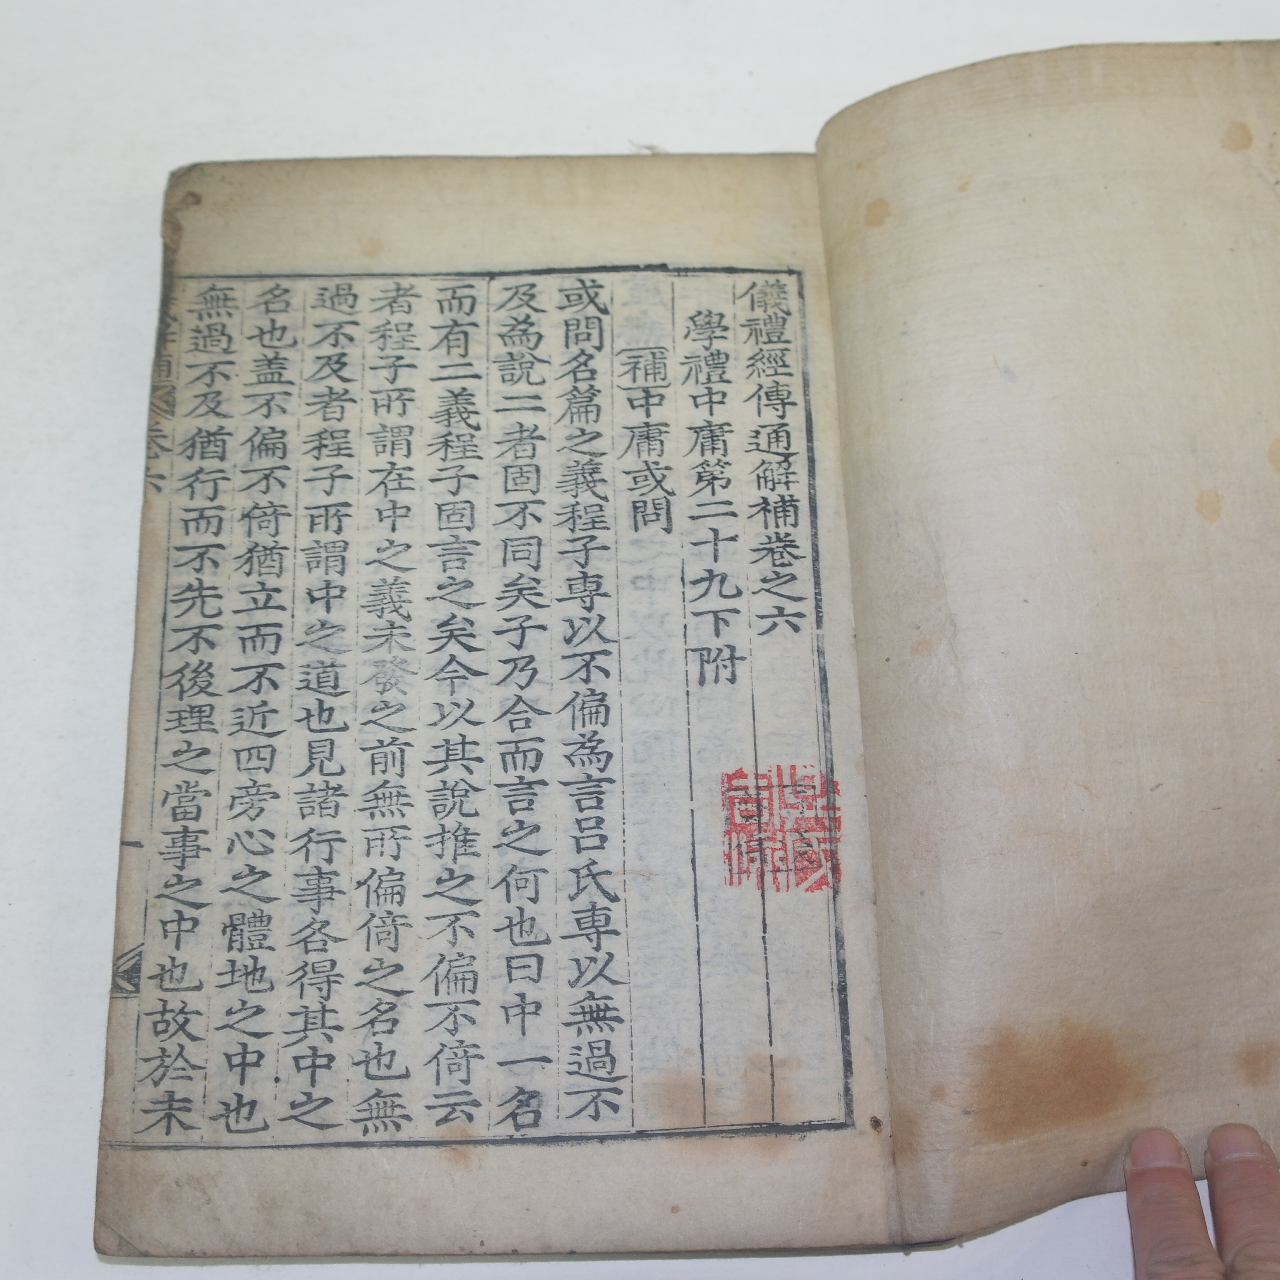 儀禮經傳通解補卷之六
學禮中庸第二十九下附
補中庸或問
或問名篇之義程子專以不偏為言呂氏專以無過不
及為說二者固不同矣子乃合而言之何也曰中一名
而有二義程子固言之矣今以其說推之不偏不倚云
者程子所謂在中之義未發之前無所偏倚之名也無
過不及者程子所謂中之道也見諸行事各得其中之
名也盖不偏不倚猶立而不近四旁心之體地之中也
無過不及猶行而不先不後理之當事之中也故於未
卷六